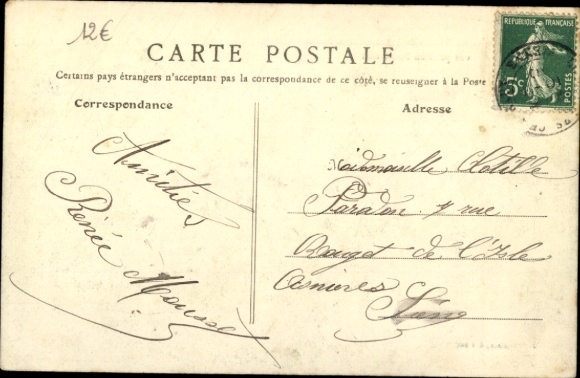 12€
RÉPUBLIQUE FRANÇAISE
5c POSTES
CARTE POSTALE
Certains pays étrangers n'acceptant pas la correspondance de ce côté, se renseigner à la Poste
Correspondance
Adresse
Amitiés
Renée Mousset
Mademoiselle Clotille
rue
Rouget de l'Isle
Asnières